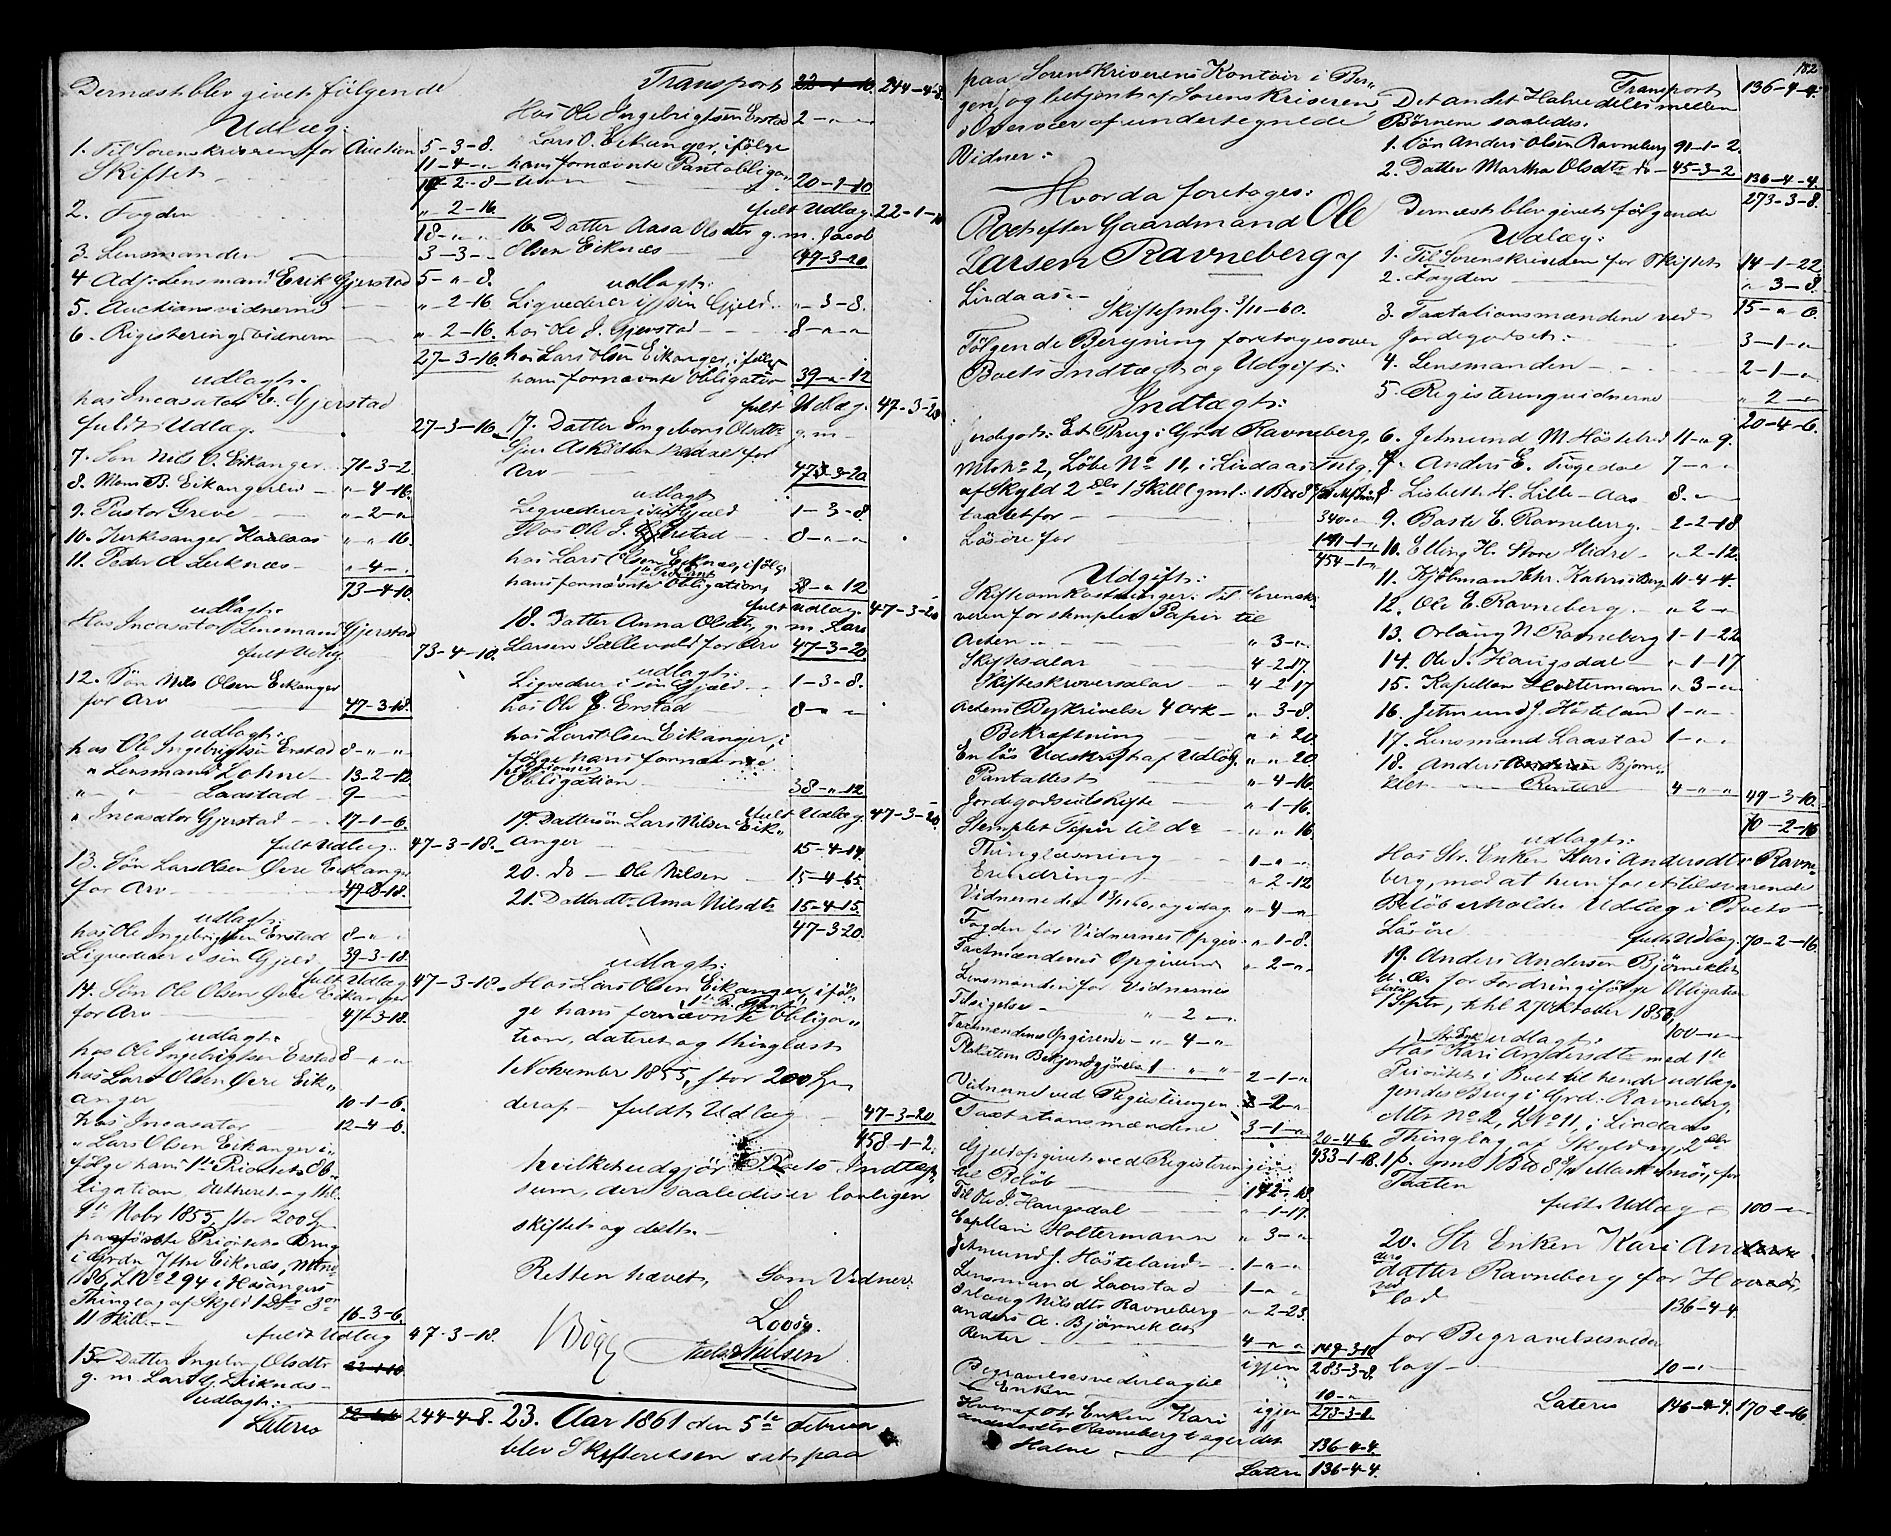 Dernæst blev givet følgende
Udlæg:
1. Til Sorenskriveren for Auction 5-3-8.
Skiftet 11-4-"
17-2-8
2. Fogden " 2-16.
18-"-"
3. Lensmanden 3-3-"
4 Adj. Lensmand Erik Gjerstad 5-"-8.
5. Auctionsvidnerne " 2-16
6. Registeringsvidnerne " 2-16.
27-3-16.
udlagt:
hos Incasator E. Gjerstad
fuldt Udlæg 27-3-16.
7. Søn Nils O. Eikanger 71-3-2.
8. Mons B. Eikangerlid " 4-16.
9. Pastor Greve "-2-"
10. Kirkesanger Kaalaas "-"-16.
11. Peder A. Leiknæs "-4-"
73-4-10.
udlagt:
Hos Incasator Lensmand Gjerstad
fuldt Udlæg 73-4-10.
12. Søn Nils Olsen Eikanger
for Arv 47-3-18.
udlagt:
hos Ole Ingebrigtsen Erstad 8-"-"
" Lensmand Lohne 13-2-12.
" " Laastad 9-
" Incasator Gjerstad 17-1-6.
fuldt Udlæg 47-3-18.
13. Søn Lars Olsen Øvre Eikanger
for Arv 47-3-18.
udlagt:
hos Ole Ingebrigtsen Erstad 8-"-"
Ligvederer i sin Gjeld 39-3-18.
fuldt Udlæg 47-3-18.
14. Søn Ole Olsen Øvre Eikanger
for Arv 47-3-18.
udlagt:
hos Ole Ingebrigtsen Erstad 8-"-"
hos Lars Olsen Øvre Eik-
anger 10-1-6.
hos Incasator 12-4-6.
" Lars Olsen Eikanger i-
følge hans 1ste Prioritets Ob-
ligation, datteret og thl.
1ste Nobr 1855, stor 200 Spd
Prioritet i Brug
i Grdn Yttre Eiknæs, Mtno
186, LNo 294 i Hosangers
Thinglag af Skyld 1 Dlr 3 ort
11 Skill. 16-3-6.
fuldt Udlæg 47-3-18.
15. Datter Ingeborg Olsdtr 22-1-10
g. m. Lars G. Leiknæs
udlagt:
Lateris 22-1-10 244-4-8.
Transport 22-1-10. 244-4-8.
Hos Ole Ingebrigtsen Erstad 2-"-"
Lars O. Eikanger, ifølge
hans fornævnte Pantobliga-
tion 20-1-10
fuldt Udlæg 22-1-10
16. Datter Aasa Olsdtr g. m. Jacob
Olsen Eiknæs 47-3-20
udlagt:
Ligvederer i sin Gjeld "-3-8.
hos Ole J. Gjerstad 8-"-"
hos Lars Olsen Eikanger, ifølge
hans fornævnte Obligation 39-"-12
fuldt Udlæg. 47-3-20
17. Datter Ingeborg Olsdtr g. m.
Arv 47-3-20
udlagt
Ligvederer i sin Gjeld 1-3-8.
Hos Ole J. Erstad 8-"-"
hos Lars Olsen Eikanger, ifølge
hans fornævnte Obligation, 38-"-12
fuldt udlæg. 47-3-20
18. Datter Anna Olsdtr, g. m. Lars
Larsen Sællevold for Arv 47-3-20.
udlagt:
Ligvederer i sin Gjeld 1-3-8.
hos Ole J. Erstad 8-"-"
hos Lars Olsen Eikanger, i-
følge hans fornævnte
Obligation 38-"-12
fuldt Udlæg 47-3-20.
19. Dattersøn Lars Nilsen Eik-
anger 15-4-14.
20. do - Ole Nilsen 15-4-15.
21. Datterdtr Anna Nilsdtr 15-4-15.
47-3-20.
udlagt:
Hos Lars Olsen Eikanger, iføl-
ge hans fornævnte Obliga-
tion, dateret og thinglæst
1 November 1855, stor 200 Spd
deraf fuldt Udlæg 47-3-20
458-1-2.
hvilket udgjør Boets Indtægt
sum, der saaledes er lovligen
skiftet og deelt.
Retten hævet. Som Vidner.
Bøgh Loosy.
Niels Nilsen
23. Aar 1861 den 5te Februar
blev Skifteretten sat paa
182
paa Sorenskriverens Kontoir i Ber-
gen, og betjent af Sorenskriveren
i Overvær af undertegnede
Vidner:
Hvorda foretoges:
Boet efter Gaardmand Ole
Larsen Ravneberg af
Lindaas.
Skiftesmlg. 3/11-60.
Følgende Beregning foretoges over
Boets Indtægt og Udgift:
Indtægt:
Jordegods: Et Brug i Grd Ravneberg,
Mtr No 2, Løbe No 11, i Lindaas Thlg.
af Skyld 2 Dlr 1 Skill (gml.
taxtet for 340-"-
Løsøre for 114-1-"
454-1-"
Udgift:
Skifteomkostninger: Til Sorenskri-
veren for stemplet Papir til
Acten " 3-"
Skiftesalar 4-2-17.
Skifteskriversalar 4-2-17
Actens Beskrivelse 4 Ark " 3-8.
Bekræftning " " 20.
En løs Udskrift af Udlæg. " " 20
Pantattest " -4-16.
Jordegodsudskifte " 1-16.
Stemplet Papir til do " " 16
Thinglæsning 1-"-"
Erindring " 2-12
Vidnerne den og idag " 4-"
Fogden for Vidnernes Opgiv. " 1-8.
Taxtmændenes Opgivend " 2-"
Lensmanden for Vidnernes
Tilsigelse " 2-"
Taxtmændens Opgivende " 4-"
Plakaters Bekjendtgjørelse 1 " " 2-1-"
Vidnerne ved Registeringen " 2-"
Taxtationsmændene 3-1-" 20-4-6
433-1-18.
Gjæld opgivet ved Registeringen
til Beløb 142-"-18.
Til Ole J. Haugsdal " 1-17.
Capellan Holtermann " 3-"
Jetmund J. Høsteland 1-"-"
Lensmand Laastad 1-"-"
Erlaug Nilsdtr Ravneberg " 2-23.
Anders A. Bjørneklet
Renter 4-"-" 149-3-10
igjen 283-3-8.
Begravelsesvederlag til
Enken 10-"-
igjen 273-3-8
Hvoraf Str Enken Kari
Andersdtr Ravneberg tager det
Halve 136-4-4.
Lateris 136-4-4.
Transport 136-4-4.
Det andet Halve deles mellem
Børnene saaledes.
1. Søn Anders Olsen Ravneberg 91-1-2.
2. Datter Martha Olsdtr do 45-3-2. 136-4-4.
273-3-8.
Dernæst blev givet følgende
Udlæg:
1. Til Sorenskriveren for Skiftet 14-1-22.
2. Fogden " 3-8.
15-"-6.
3. Taxtationsmændene ved
Jordegodset: 3-1-"
4. Lensmanden 2-1-"
5. Registeringvidnerne " 2-"
20-4-6.
6. Jetmund M. Høsteland 11-"-9.
7. Anders E. Fugedal 7-"-"
8. Lisbeth H. Lille-Aas 8.-"
9. Baste E. Ravneberg. 2-2-18
10. Elling H. Store Midre " 2-12.
11. Kjøbmand Chr. Kahrs i Berg. 11-4-4.
12. Ole E. Ravneberg. " 2-"
13. Orlaug N. Ravneberg 1-1-22.
14. Ole J. Haugsdal " 1-17
15. Kapellan Holtermann " 3-"
16. Jetmund J. Høsteland 1-"-
17. Lensmand Laastad 1-"-
18. Anders Andersen Bjørne-
klet Renter 4-"-" 49-3-10.
70-2-16
udlagt:
Hos Str. Enken Kari Andersdtr Ravne-
berg, mod at hun for et tilsvarende
Beløb erholder Udlæg i Boets
Løsøre fuldt Udlæg 70-2-16
19. Anders Andersen Bjørneklet
for Fordring ifølge Obligation
Septbr, thl. 27 Oktober 1856, 100-"-
udlagt.
Hos Str. Enk. Kari Andersdtr med 1ste
Prioritet i Boet til hende udlæg-
gendes Brug i Grd. Ravneberg,
Mtr No 2, LNo 11, i Lindaas
Thinglag af Skyld ny 2 Dlr
for
Taxten
fuldt Udlæg 100-"-
20. Str Enken Kari Anders-
datter Ravneberg for Hoved-
lod 136-4-4.
for Begravelsesveder
lag 10-"-
Lateris 146-4-4. 170-2-16